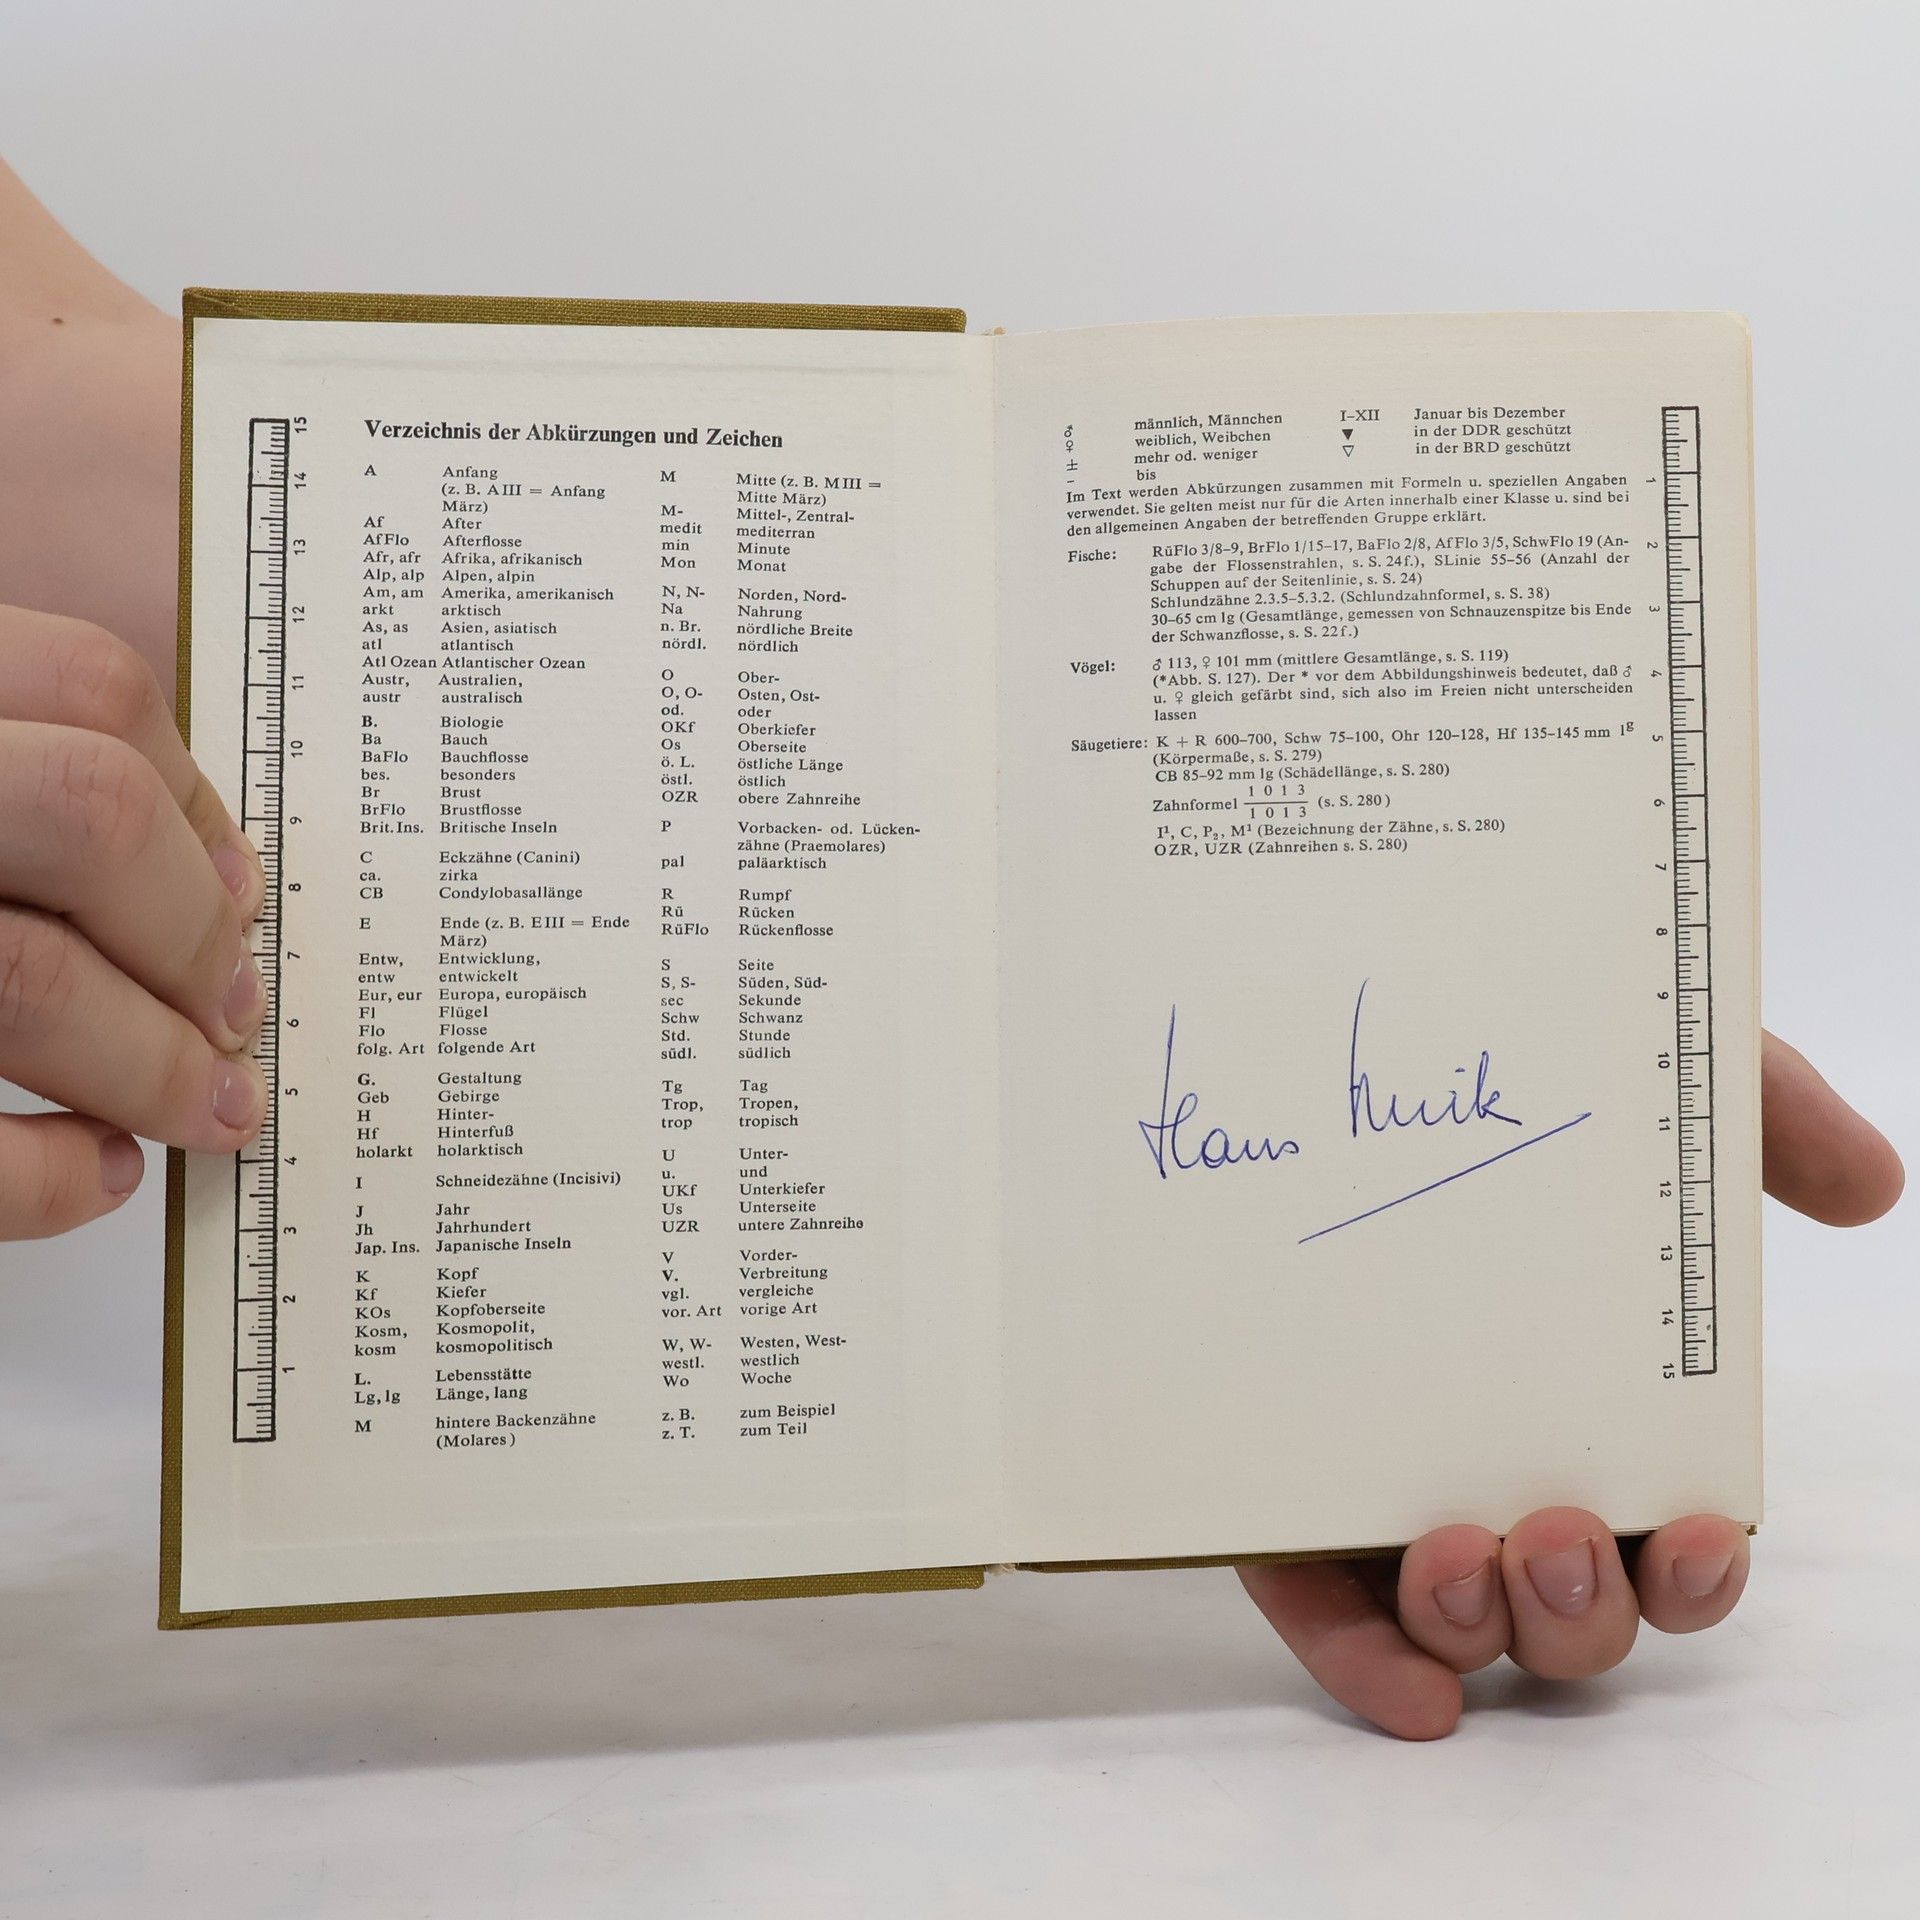 Verzeichnis der Abkürzungen und Zeichen
A Anfang
(z. B. A III = Anfang
März)
Af After
AfFlo Afterflosse
Afr, afr Afrika, afrikanisch
Alp, alp Alpen, alpin
Am, am Amerika, amerikanisch
arkt arktisch
As, as Asien, asiatisch
atl atlantisch
Atl Ozean Atlantischer Ozean
Austr, Australien,
austr australisch
B. Biologie
Ba Bauch
BaFlo Bauchflosse
bes. besonders
Br Brust
BrFlo Brustflosse
Brit. Ins. Britische Inseln
C Eckzähne (Canini)
ca. zirka
CB Condylobasallänge
E Ende (z. B. E III = Ende
März)
Entw, Entwicklung,
entw entwickelt
Eur, eur Europa, europäisch
Fl Flügel
Flo Flosse
folg. Art folgende Art
G. Gestaltung
Geb Gebirge
H Hinter-
Hf Hinterfuß
holarkt holarktisch
I Schneidezähne (Incisivi)
J Jahr
Jh Jahrhundert
Jap. Ins. Japanische Inseln
K Kopf
Kf Kiefer
KOs Kopfoberseite
Kosm, Kosmopolit,
kosm kosmopolitisch
L. Lebensstätte
Lg, lg Länge, lang
M hintere Backenzähne
(Molares)
M Mitte (z. B. M III =
Mitte März)
M- Mittel-, Zentral-
medit mediterran
min Minute
Mon Monat
N, N- Norden, Nord-
Na Nahrung
n. Br. nördliche Breite
nördl. nördlich
O Ober-
O, O- Osten, Ost-
od. oder
OKf Oberkiefer
Os Oberseite
ö. L. östliche Länge
östl. östlich
OZR obere Zahnreihe
P Vorbacken- od. Lücken-
zähne (Praemolares)
pal paläarktisch
R Rumpf
Rü Rücken
RüFlo Rückenflosse
S Seite
S, S- Süden, Süd-
sec Sekunde
Schw Schwanz
Std. Stunde
südl. südlich
Tg Tag
Trop, Tropen,
trop tropisch
U Unter-
u. und
UKf Unterkiefer
Us Unterseite
UZR untere Zahnreihe
V Vorder-
V. Verbreitung
vgl. vergleiche
vor. Art vorige Art
W, W- Westen, West-
westl. westlich
Wo Woche
z. B. zum Beispiel
z. T. zum Teil
15
14
13
12
11
10
9
8
7
6
5
4
3
2
1
♂ männlich, Männchen I–XII Januar bis Dezember
♀ weiblich, Weibchen ▼ in der DDR geschützt
± mehr od. weniger ▽ in der BRD geschützt
– bis
Im Text werden Abkürzungen zusammen mit Formeln u. speziellen Angaben
verwendet. Sie gelten meist nur für die Arten innerhalb einer Klasse u. sind bei
den allgemeinen Angaben der betreffenden Gruppe erklärt.
Fische: RüFlo 3/8–9, BrFlo 1/15–17, BaFlo 2/8, AfFlo 3/5, SchwFlo 19 (An-
gabe der Flossenstrahlen, s. S. 24f.), SLinie 55–56 (Anzahl der
Schuppen auf der Seitenlinie, s. S. 24)
Schlundzähne 2.3.5–5.3.2. (Schlundzahnformel, s. S. 38)
30–65 cm lg (Gesamtlänge, gemessen von Schnauzenspitze bis Ende
der Schwanzflosse, s. S. 22f.)
Vögel: ♂ 113, ♀ 101 mm (mittlere Gesamtlänge, s. S. 119)
(*Abb. S. 127). Der * vor dem Abbildungshinweis bedeutet, daß ♂
u. ♀ gleich gefärbt sind, sich also im Freien nicht unterscheiden
lassen
Säugetiere: K + R 600–700, Schw 75–100, Ohr 120–128, Hf 135–145 mm lg
(Körpermaße, s. S. 279)
CB 85–92 mm lg (Schädellänge, s. S. 280)
1 0 1 3
Zahnformel (s. S. 280)
1 0 1 3
I¹, C, P₂, M¹ (Bezeichnung der Zähne, s. S. 280)
OZR, UZR (Zahnreihen s. S. 280)
Hans
1
2
3
4
5
6
7
8
9
10
11
12
13
14
15